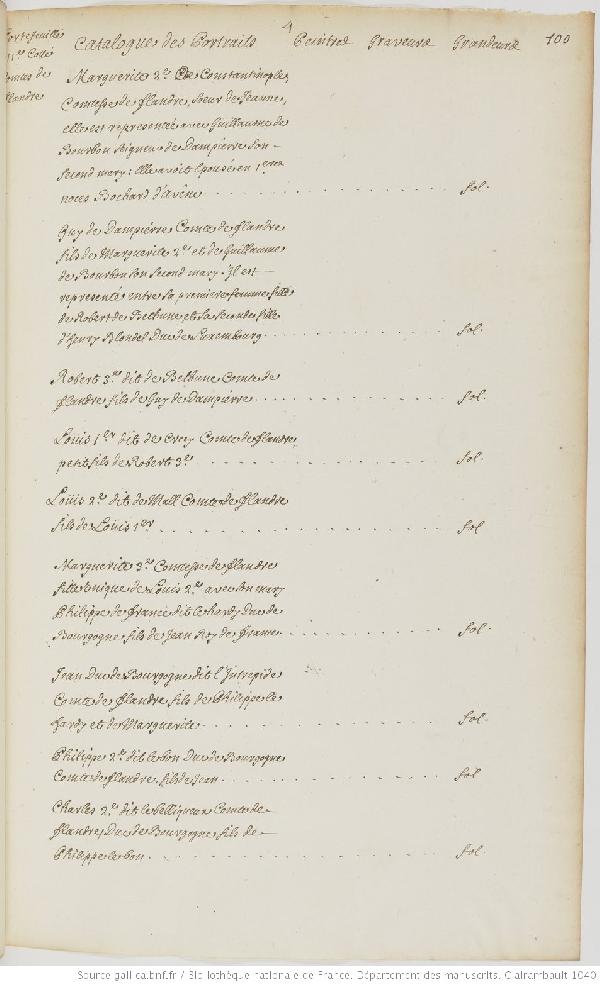 4
Portefeuille
Catalogue des Portraits Peintre Graveure Grandeure 100
1er Cotté
Comtes de
flandre
Marguerite 2e De Constantinople,
Comtesse de flandre, Soeur de Jeanne,
elle est representée avec Guillaume de
Bourbon Seigneur de Dampierre Son
Second mary: Elle avoit Epousé en 1eres
noces Bochard d'avêne . . . . . . . . . . . . . fol.
Guy de Dampierre Comte de flandre
fils de Marguerite 2e et de Guillaume
de Bourbon Son Second mary. Il est
representé entre Sa premiere femme fille
de Robert de Bethune et Sa Seconde fille
d'henry Blondel Duc de Luxembourg . . . . . . . . . fol.
Robert 3e dit de Bethune Comte de
flandre fils de Guy de Dampierre . . . . . . . . . . fol.
Louis 1er dit de Crecy Comte de flandre
petit fils de Robert 3e . . . . . . . . . . . . . fol.
Louis 2e dit de Mall Comte de flandre
fils de Louis 1er . . . . . . . . . . . . . . . fol
Marguerite 3e Comtesse de flandre
fille Unique de Louis 2e avec Son mary
Philippe de france dit le hardy Duc de
Bourgogne fils de Jean Roy de france . . . . . . . . fol.
Jean Duc de Bourgogne dit l'Intrepide
Comte de flandre, fils de Philippe le
hardy et de Marguerite . . . . . . . . . . . . . fol.
Philippe 2e dit le bon Duc de Bourgogne
Comte de flandre. fils de Jean . . . . . . . . . . . fol
Charles 2e dit le belliqueux Comte de
flandre, Duc de Bourgogne, fils de
Philippe le bon . . . . . . . . . . . . . . . . fol.
Source gallica.bnf.fr / Bibliothèque nationale de France. Département des manuscrits. Clairambault 1040